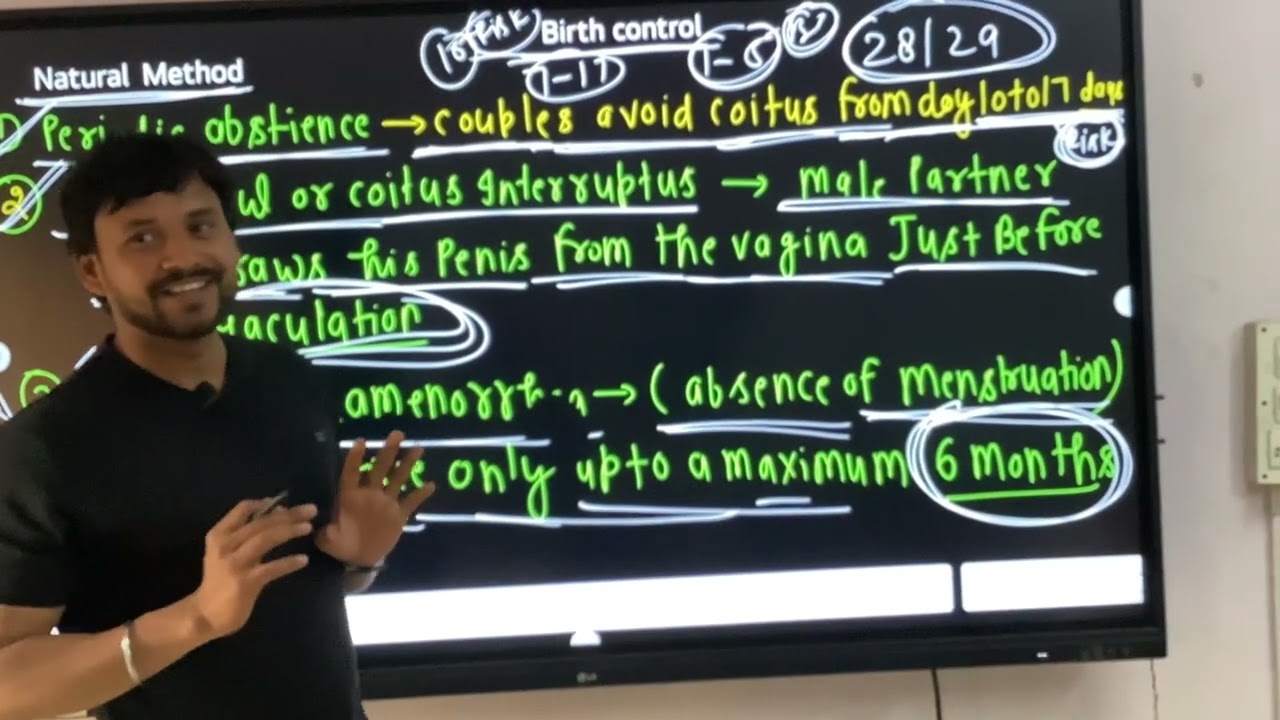 Birth control
28/29
Natural Method
1-17
1) Peri obstience → couples avoid coitus from day 10 to 17 days
Risk
2 or coitus Interruptus → Male Partner
his Penis from the vagina Just Before
aculation
amenorr → (absence of Menstruation)
only upto a maximum 6 months
LG